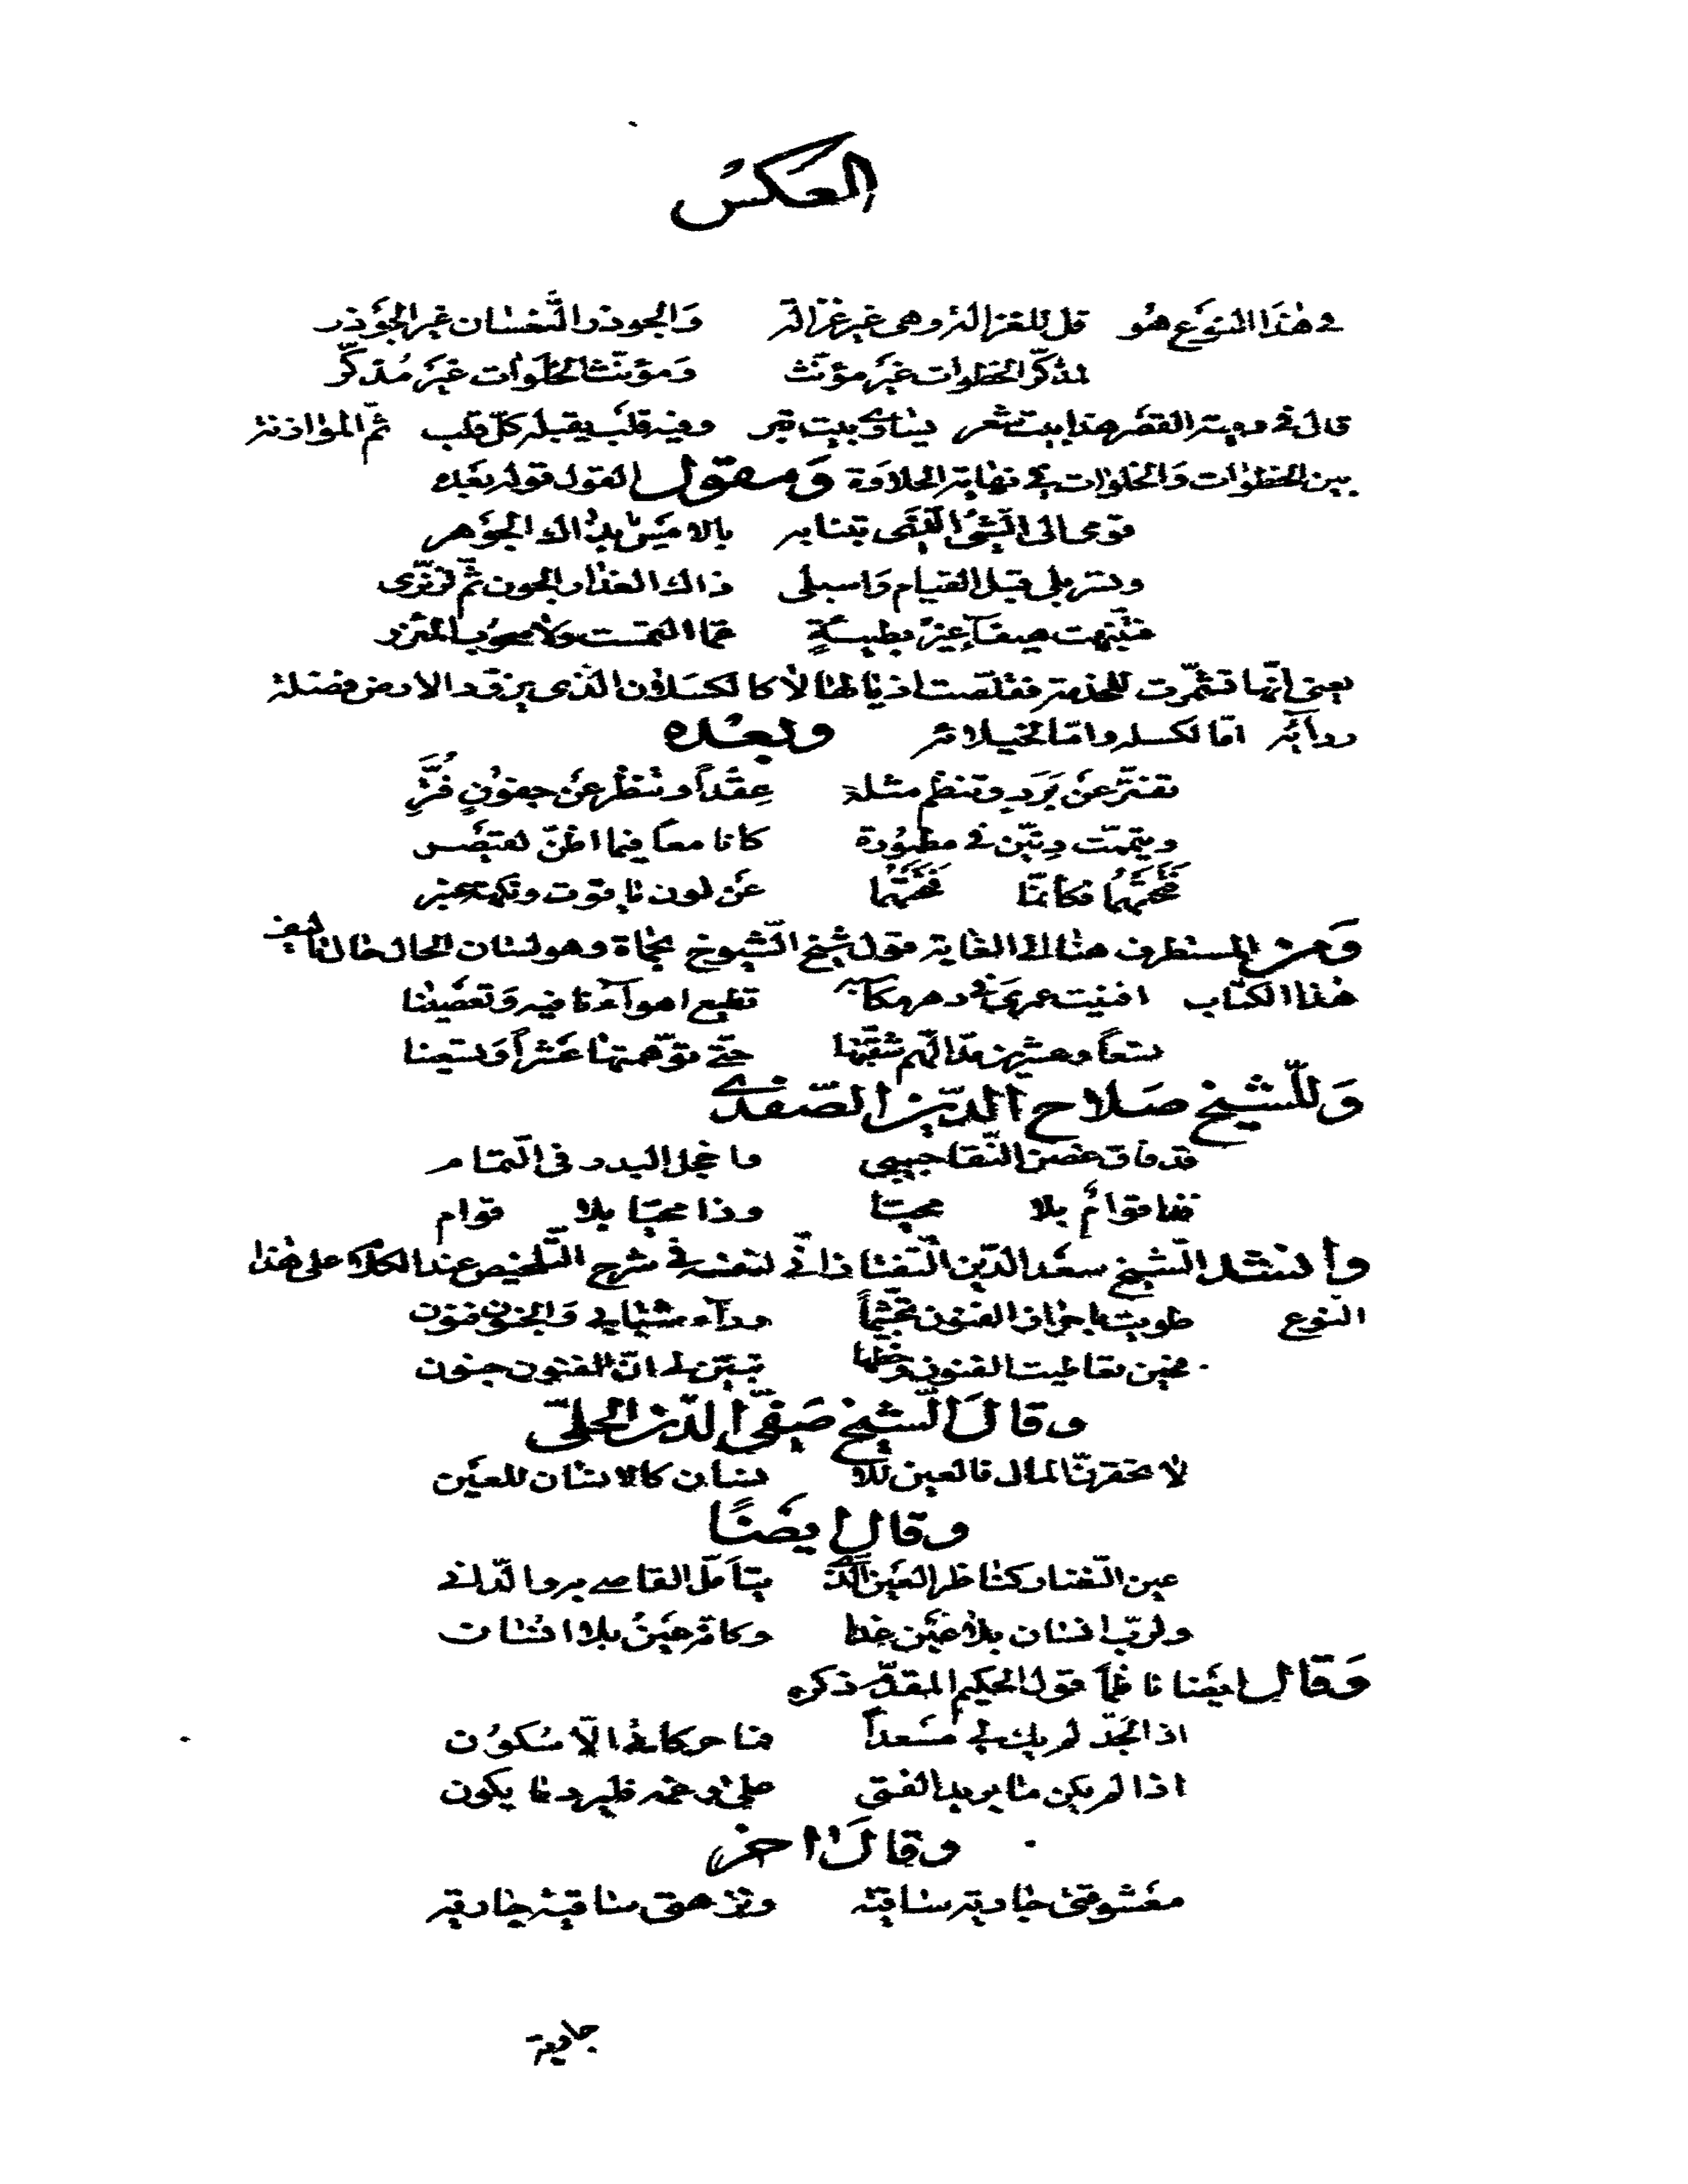 العكس
في هذا النوع هو قل للغزالة وهي غير غزالة والجوذر النعسان غير الجوذر
لمذكر الخطوات غير مؤنث ومؤنث الخلوات غير مذكر
قال في دمية القصر هذا بيت شعر يساوي بيت تبر وفيه قلب يقبله كل قلب ثم الموازنة
بين الخطوات والخلوات في نهاية الحلاوة ومنقول القول قوله بعده
قومي الى الشئ
بذاك الجوهر
قبل القيام واسبلي ذاك العذار الجون ثم
يعني انها تشمرت للخدمة فقلصت اذيالها لا كالكسلان الذي يزود الارض فضلة
ردائه اما لكسله واما لخيلائه وبعده
تفتر عن برد وتنظم مثله عقدا وتنظر عن جفون فتر
كانا معا فيما اظن لقيصر
فكأنما عن لون ياقوت ونكهة عنبر
ومن المستظرف هنا الى الغاية قول شيخ الشيوخ بحماة وهو لسان الحال خال تاليف
هذا الكتاب افنيت عمري في دهر مكاسبه تطيع اهواءنا فيه وتعصينا
تسعا وعشرين مد الهم شقتها حتى توهمتها عشرا وتسعينا
وللشيخ صلاح الدين الصفدي
قد فاق غصن النقا حبيبي واخجل البدر في التمام
فذا قوام بلا محيا وذا محيا بلا قوام
وانشد الشيخ سعد الدين التفتازاني لنفسه في شرح التلخيص عند الكلام على هذا
النوع طويت باحراز الفنون رداء شبابي والجنون فنون
فحين تعاطيت الفنون وحظها تبين لي ان الفنون جنون
وقال الشيخ صفي الدين الحلي
لا تحقرن المال فالعين للا نسان كالانسان للعين
وقال ايضا
عين النضار كناظر العين الذي يتأمل القاصي به والداني
ولرب انسان بلا عين غدا وكانه عين بلا انسان
وقال ايضا ناظما قول الحكيم المقدم ذكره
اذا الجد لم يك لي مسعدا فما حركاتي الا سكون
اذا لم يكن ما يريد الفتى على رغمه فليرد ما يكون
وقال اخر
معشوقتي جارية ساقية ونزهتي ساقية جارية
جارية